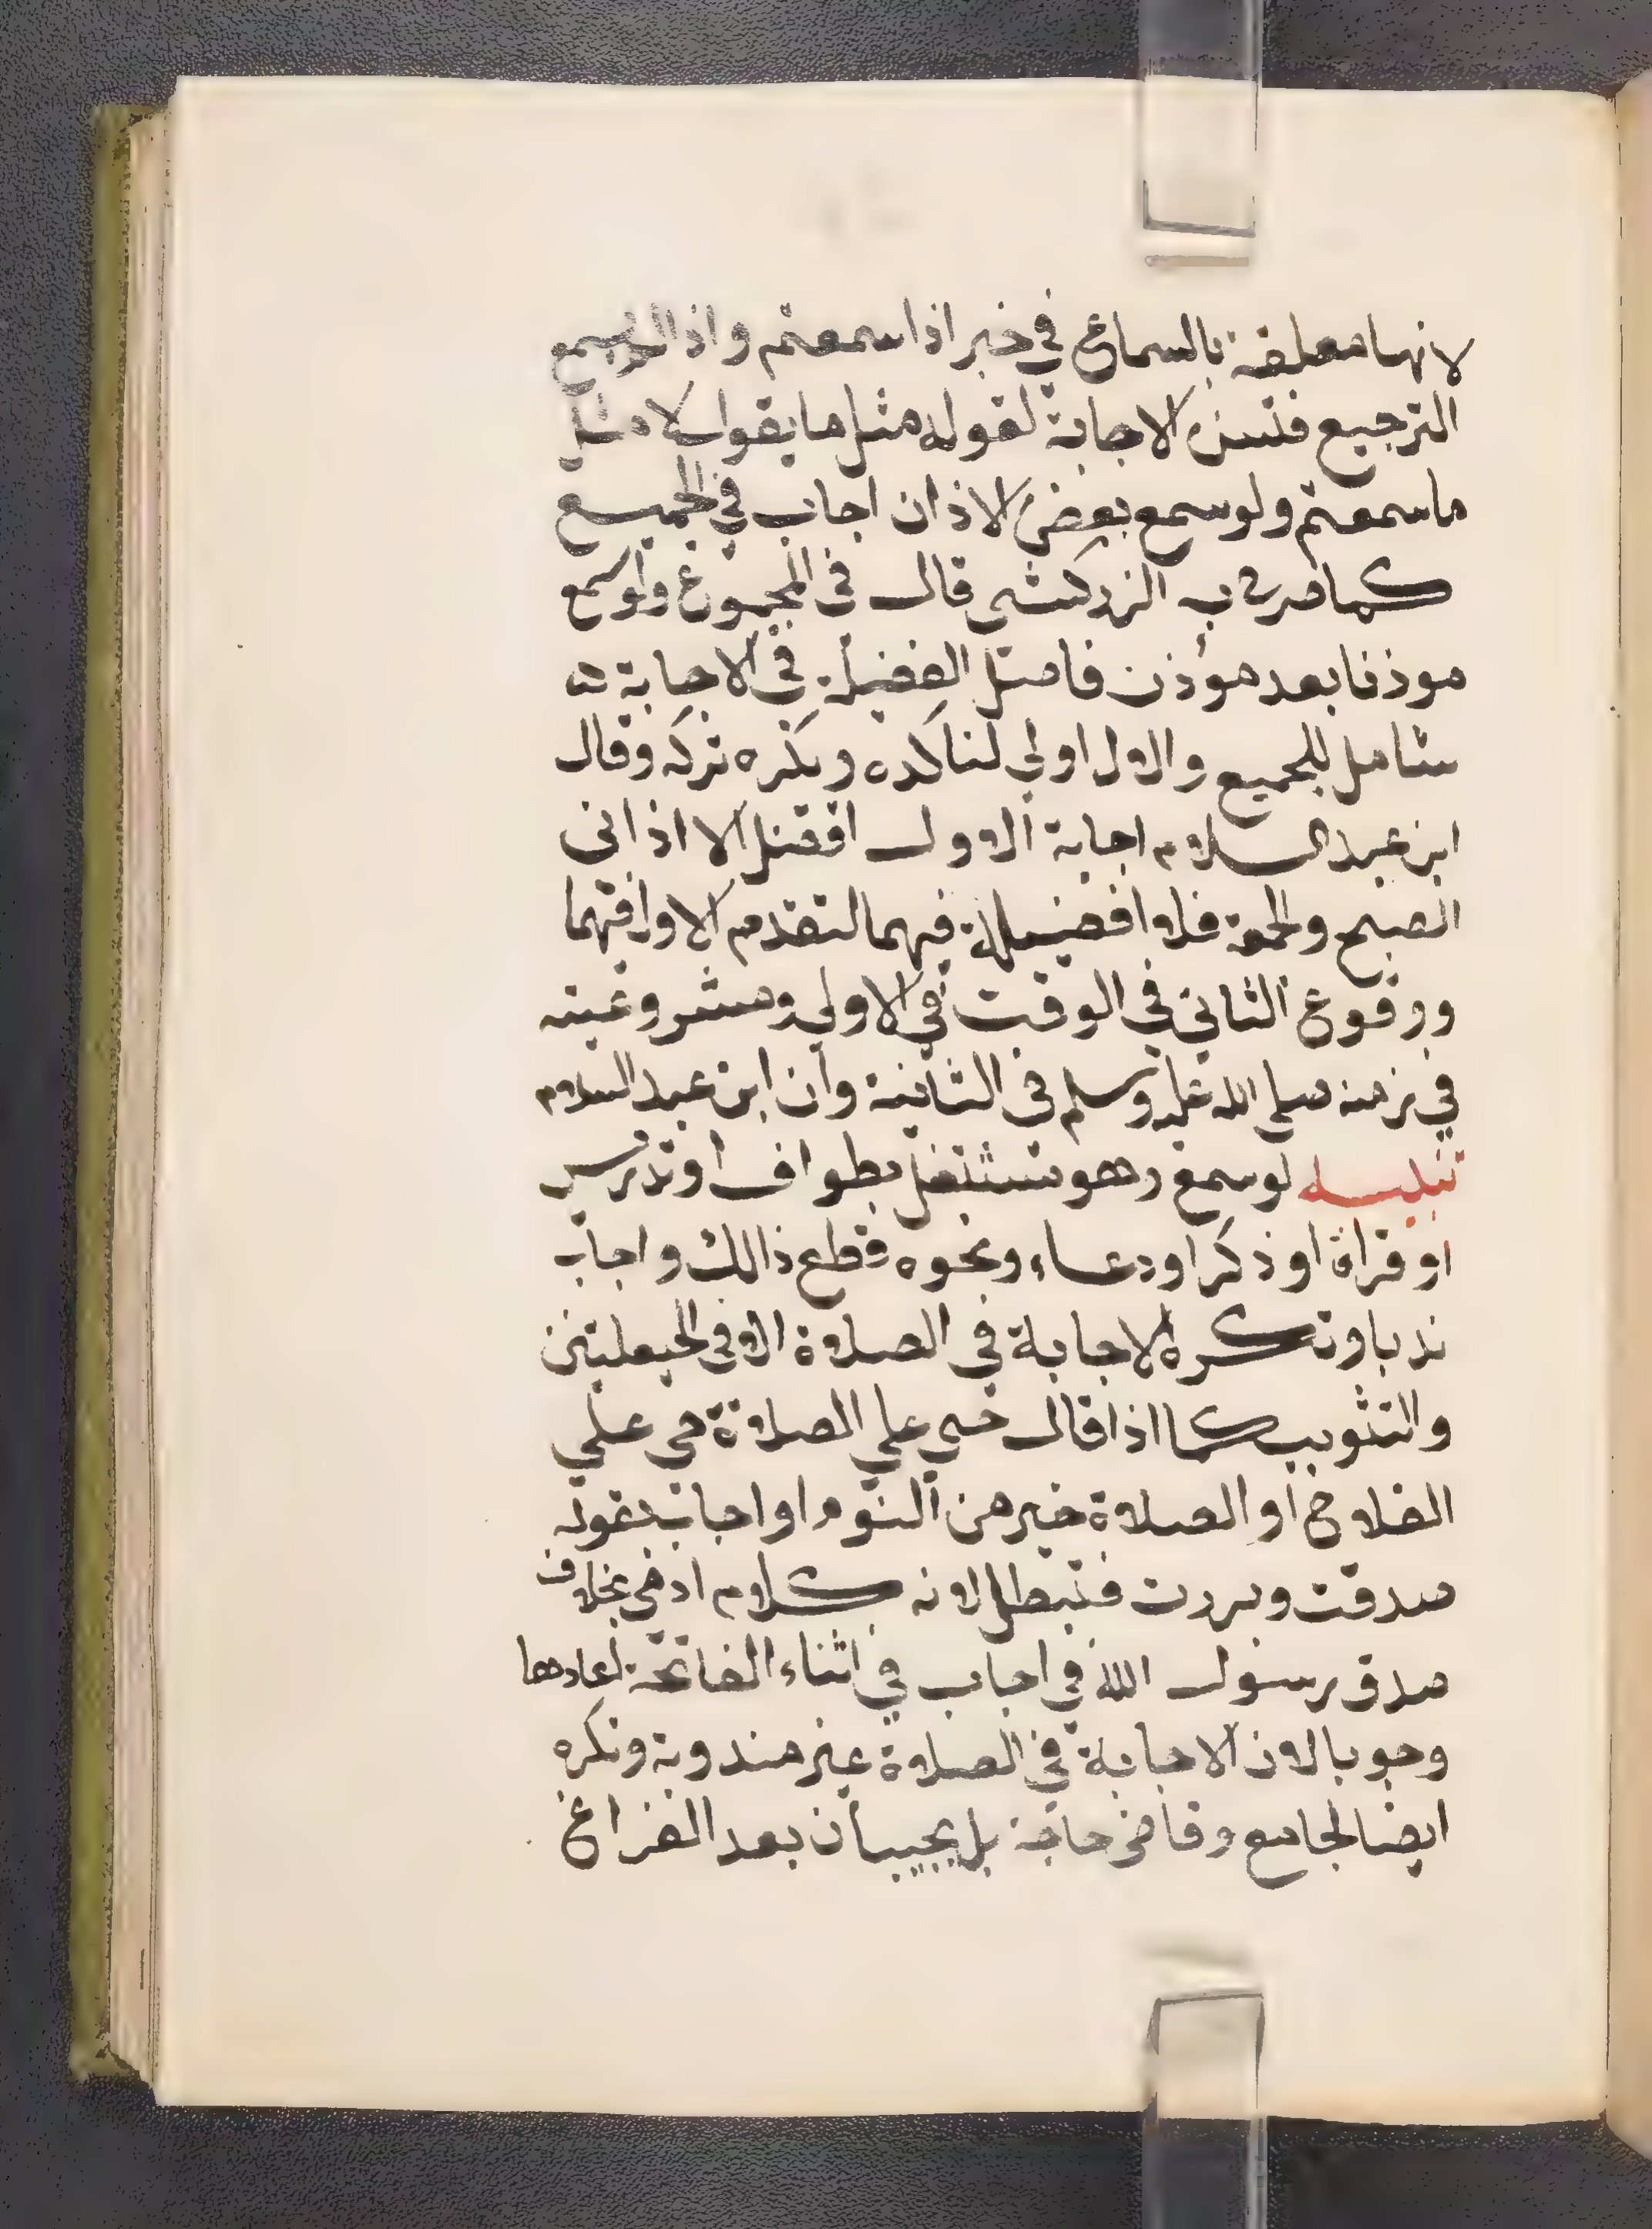 لانها معلقة بالسماع في خبر اذا سمعتم واذا لم يسمع
الترجيع فتسن الاجابة لقوله مثل ما يقول لا مثل
ما سمعتم ولو سمع بعض الاذان اجاب في الجميع
كما صرح به الزركشي قال في المجموع ولو سمع
موذنا بعد موذن فاصل الفضيلة في الاجابة
شامل للجميع والاول اولى لتاكده ويكره تركه وقال
ابن عبد السلام اجابة الاول افضل الا اذاني
الصبح والجمعة فلا افضيلة فيهما لتقدم الاول فيهما
ووقوع الثاني في الوقت في الاولى ومشروعيته
في زمنه صلى الله عليه وسلم في الثانية وان ابن عبد السلام
تنبيه لو سمع وهو مشتغل بطواف او تدريس
او قراة او ذكر او دعاء ونحوه قطع ذالك واجاب
ندبا وتكره الاجابة في الصلاة الا في الحيعلتين
والتثويب كما اذا قال حي علي الصلاة حي علي
الفلاح او الصلاة خير من النوم او اجاب بقوله
صدقت وبررت فتبطل لانه كلام ادمي بخلاف
صدق رسول الله في اجاب في اثناء الفاتحة لعادها
وجوبا لان الاجابة في الصلاة غير مندوبة وتكره
ايضا لجامع وقاضي حاجة بل يجيبان بعد الفراغ